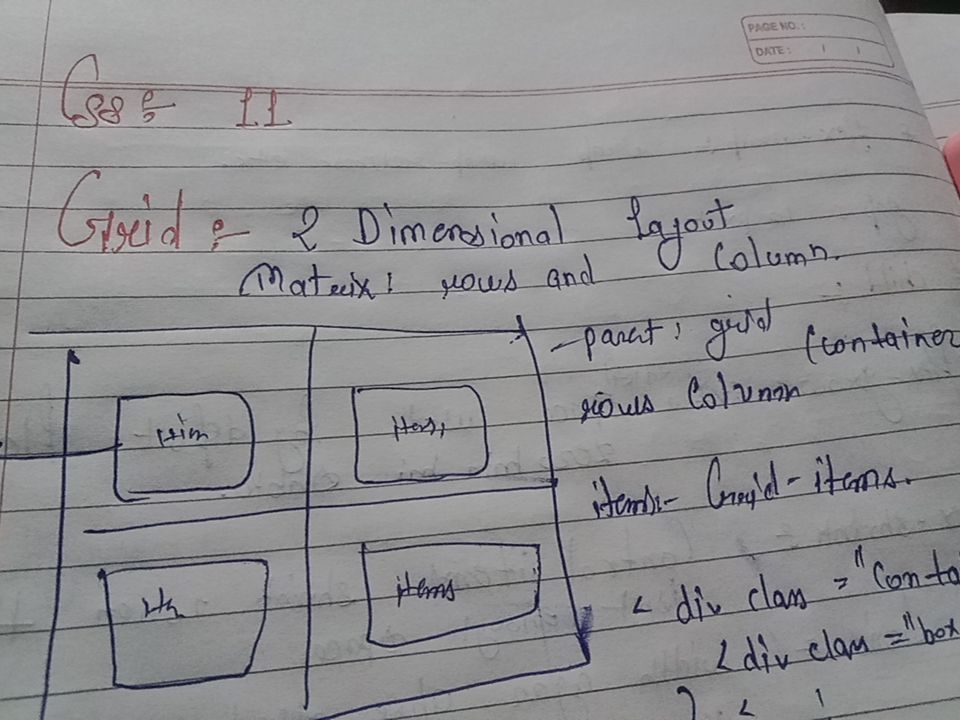 PAGE NO.:
DATE:
Css :- 11
Grid :- 2 Dimensional layout
Matrix : rows and Column.
- parent : grid (container
rows Column
items :- Grid-items.
items
< div class = "Conta
< div class = "box